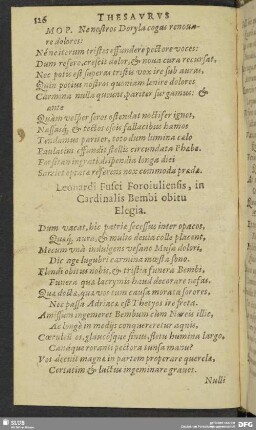 126 THESAVRVS
MOP. Ne nostros Doryla cogas renoua-
re dolores:
Ne nostrorum tristes effundere pectore voces:
Dum resero, crescit dolor, & noua cura recursat,
Nec potis est superas tristis vox ire sub auras,
Quin potius nostros quoniam lenire dolores
Carmina nulla queunt, pariter surgamus: &
ante
Quàm vesper seros ostendat noctifer ignes,
Nassasq, & tectos escis fallacibus hamos
Tendamus pariter, toto dum lumina cælo
Paulatim effundit stellis circundata Phœbe.
Forsitan ingrati dispendia longa diei
Sarciet optata referens nox commoda præda.
Leonardi Fusci Foroiuliensis, in
Cardinalis Bembi obitu
Elegia.
Dum vacat, hîc patriæ secessus inter opacos,
Quaq, aura, & multo deuia colla placent,
Mecum vnà indulgens vesano Musa dolori,
Dic age lugubri carmina mœsta sono.
Flendi obitus nobis, & tristia funera Bembi,
Funera quæ lacrymis haud decorare nefas.
Quæ docta, quæ vos tum causa morata sorores,
Nec passa Adriaca est Thetyos ire freta.
Amissum ingemeret Bembum cùm Naeeis illic,
Ac longè in medijs conquereretur aquis,
Cœruleis es, glaucosque sinus, fletu humina largo,
Canaque roranti pectora tunsa manu?
Vos decuit magna in partem properare querela,
Certatim & luctus ingeminare graues.
Nulli
SLUB
DFG